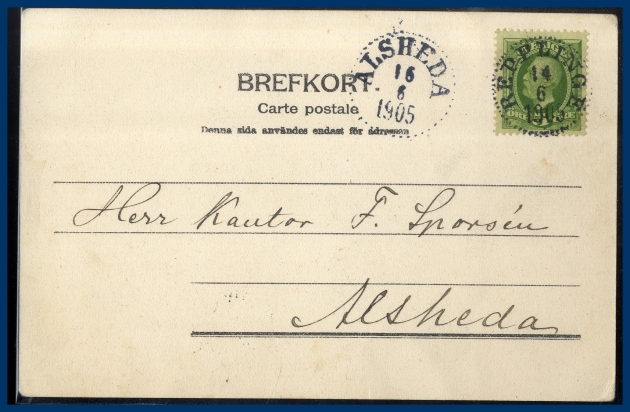 BREFKORT
Carte postale
Denna sida användes endast för adressen
ALSHEDA
16
6
1905
14
6
Herr Kantor F. Sporsén
Alsheda